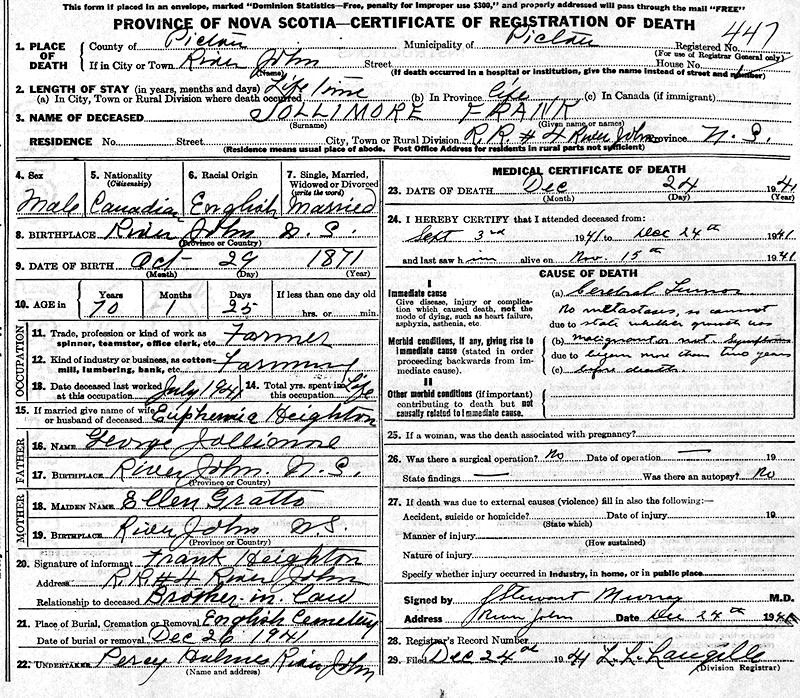 This form if placed in an envelope, marked "Dominion Statistics—Free, penalty for improper use $300," and properly addressed will pass through the mail "FREE"
PROVINCE OF NOVA SCOTIA—CERTIFICATE OF REGISTRATION OF DEATH
447
1. PLACE OF DEATH County of Pictou Municipality of Pictou Registered No.
(For use of Registrar General only)
If in City or Town River John Street House No.
(Name) (If death occurred in a hospital or institution, give the name instead of street and number)
2. LENGTH OF STAY (in years, months and days) Life time
(a) In City, Town or Rural Division where death occurred (b) In Province Life (c) In Canada (if immigrant)
3. NAME OF DECEASED JOLLIMORE FRANK
(Surname) (Given name or names)
RESIDENCE No. Street City, Town or Rural Division R.R. #4 River John Province N.S.
(Residence means usual place of abode. Post Office Address for residents in rural parts not sufficient)
4. Sex 5. Nationality (Citizenship) 6. Racial Origin 7. Single, Married, Widowed or Divorced (write the word)
Male Canadian English Married
8. BIRTHPLACE River John N.S.
(Province or Country)
9. DATE OF BIRTH Oct 29 1871
(Month) (Day) (Year)
10. AGE in Years Months Days If less than one day old
70 1 25 hrs. or min.
OCCUPATION
11. Trade, profession or kind of work as spinner, teamster, office clerk, etc. Farmer
12. Kind of industry or business, as cotton-mill, lumbering, bank, etc. Farming
13. Date deceased last worked at this occupation July 1941 14. Total yrs. spent in this occupation Life
15. If married give name of wife or husband of deceased Euphemia Heighton
FATHER
16. NAME George Jollimore
17. BIRTHPLACE River John N.S.
(Province or Country)
MOTHER
18. MAIDEN NAME Ellen Gratto
19. BIRTHPLACE River John N.S.
(Province or Country)
20. Signature of informant Frank Heighton
Address R.R. #4 River John
Relationship to deceased Brother-in-law
21. Place of Burial, Cremation or Removal English Cemetery
Date of burial or removal Dec 26 1941
22. UNDERTAKER Percy Holmes River John
(Name and address)
MEDICAL CERTIFICATE OF DEATH
23. DATE OF DEATH Dec 24 1941
(Month) (Day) (Year)
24. I HEREBY CERTIFY that I attended deceased from:
Sept 3rd 1941 to Dec 24th 1941
and last saw him alive on Nov. 15th 1941
CAUSE OF DEATH
I
Immediate cause
Give disease, injury or complication which caused death, not the mode of dying, such as heart failure, asphyxia, asthenia, etc.
(a) Cerebral Tumor
No metastases, so cannot
due to state whether growth was
Morbid conditions, if any, giving rise to immediate cause (stated in order proceeding backwards from immediate cause).
(b) malignant or not symptoms
due to began more than two years
(c) before death.
II
Other morbid conditions (if important) contributing to death but not causally related to immediate cause.
25. If a woman, was the death associated with pregnancy?
26. Was there a surgical operation? No Date of operation — 19
State findings — Was there an autopsy? No
27. If death was due to external causes (violence) fill in also the following:—
Accident, suicide or homicide? Date of injury 19
(State which)
Manner of injury
(How sustained)
Nature of injury
Specify whether injury occurred in industry, in home, or in public place
Signed by Stewart Murray M.D.
Address River John Date Dec 24th 1941
28. Registrar's Record Number
29. Filed Dec 24th 1941 L. L. Langille
(Division Registrar)